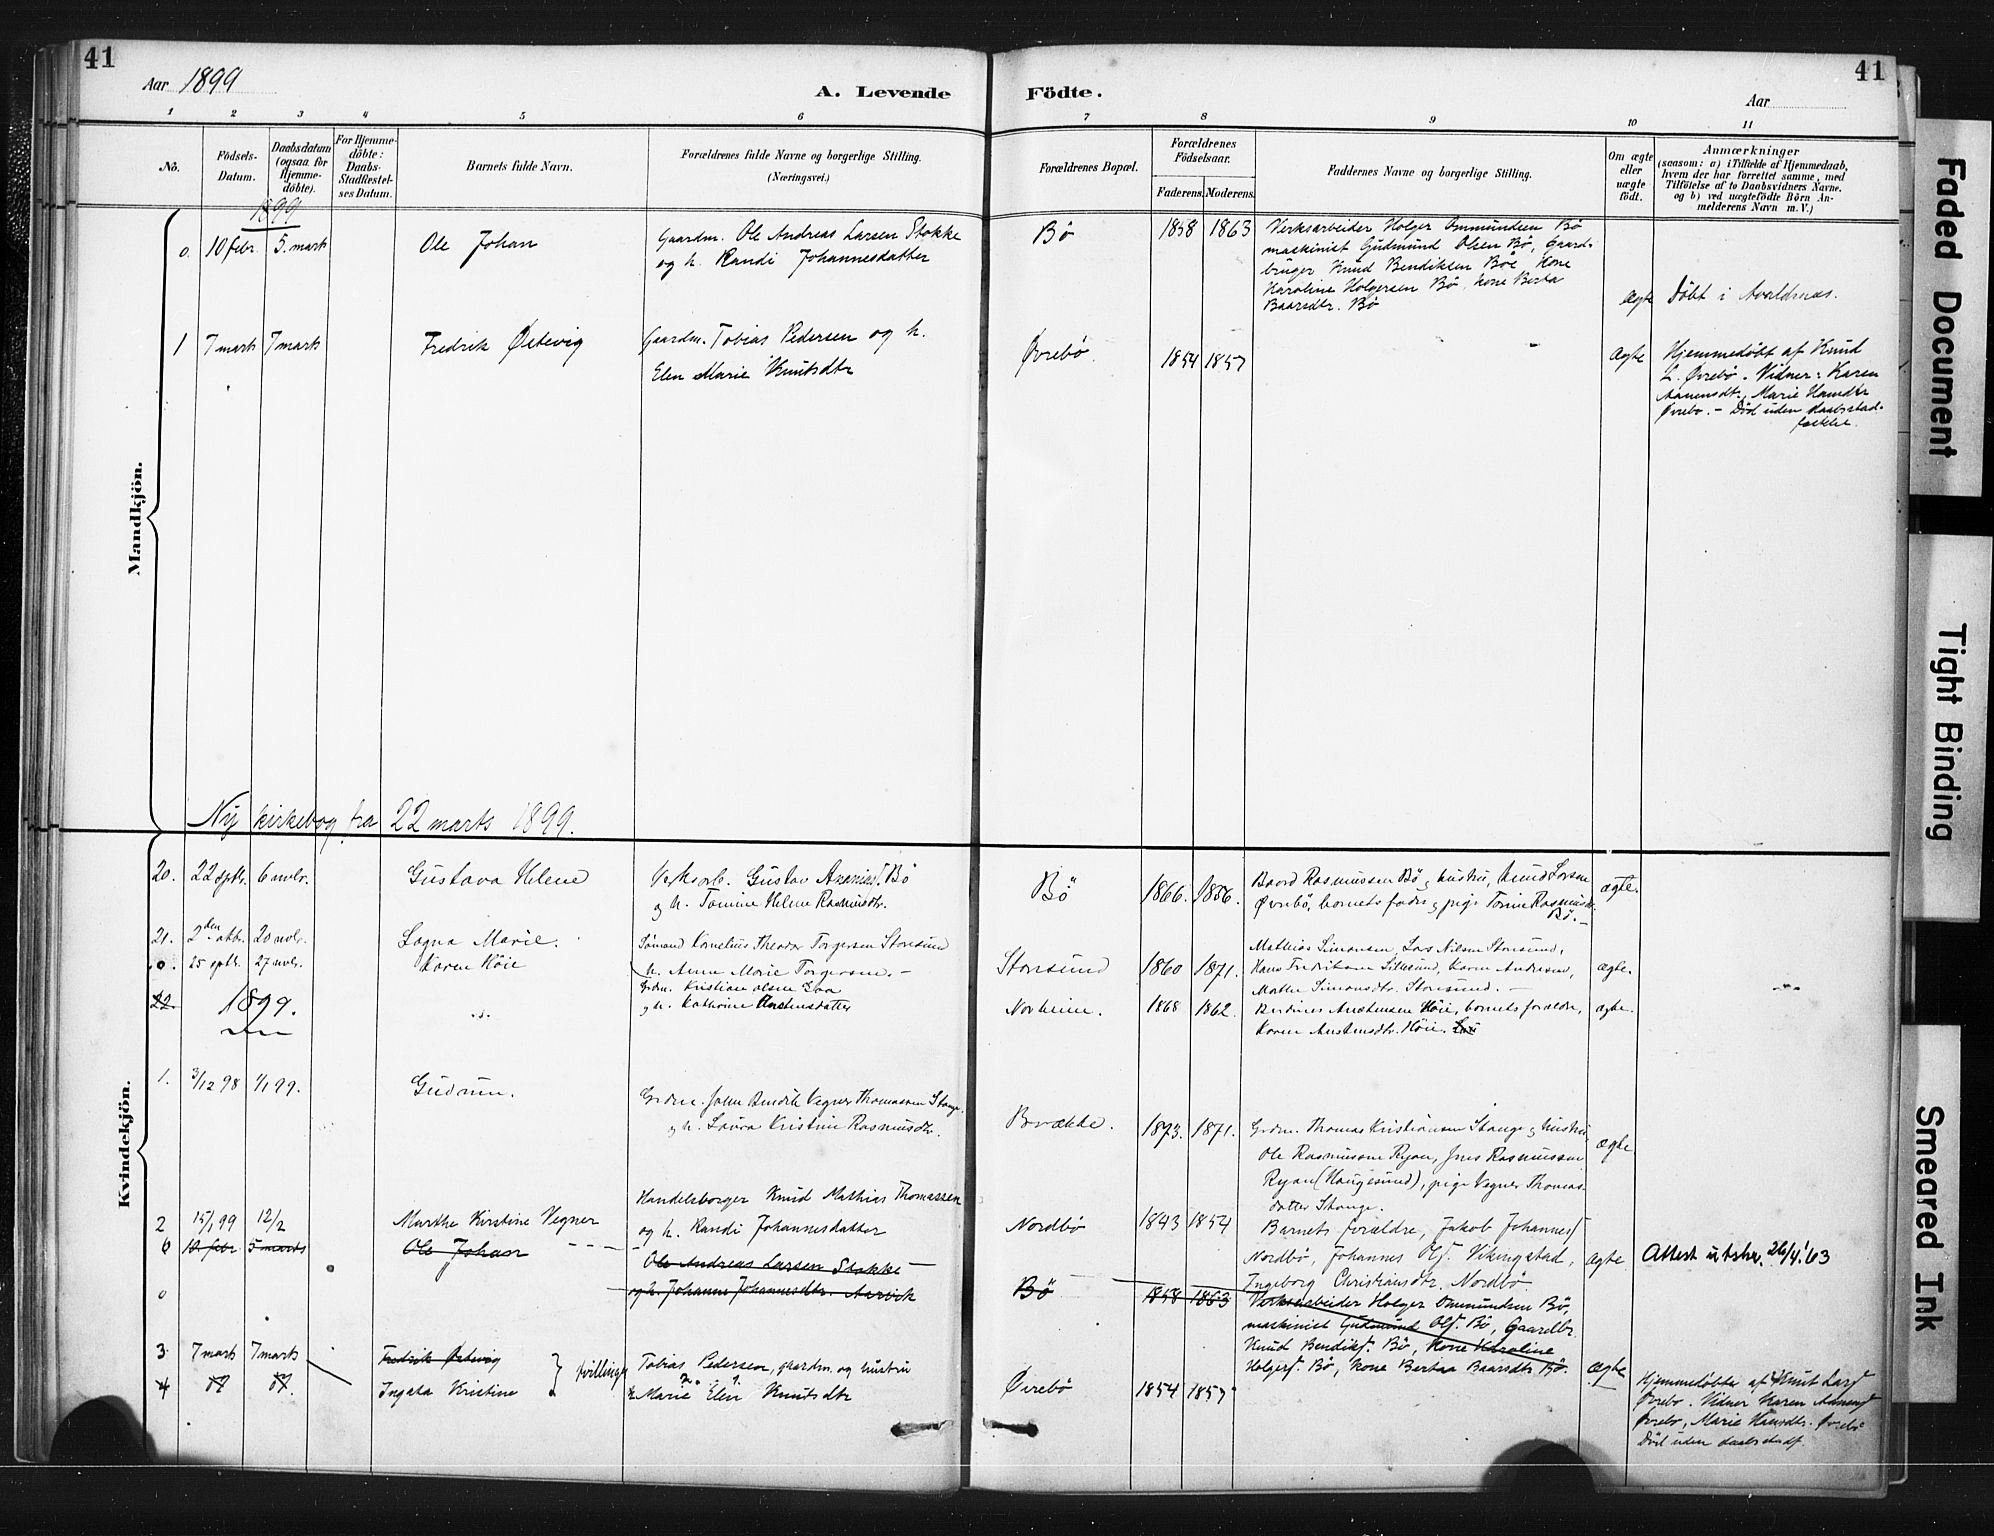 41
41
Aar 1899
A. Levende
Födte.
Aar
1 2 3 4 5 6 7 8 9 10 11
No.
Födsels-
Datum.
Daabsdatum
(ogsaa for
Hjemme-
döbte).
For Hjemme-
döbte:
Daabs-
Stadfæstel-
ses Datum.
Barnets fulde Navn.
Forældrenes fulde Navne og borgerlige Stilling.
(Næringsvei.)
Forældrenes Bopæl.
Forældrenes
Födselsaar.
Faderens. Moderens.
Faddernes Navne og borgerlige Stilling.
Om ægte
eller
uægte
födt.
Anmærkninger
(saasom: a) i Tilfælde af Hjemmedaab,
hvem der har forrettet samme, med
Tilföielse af to Daabsvidners Navne.
og b) ved uægtefödte Börn An-
melderens Navn m. V.)
Mandkjön.
1899
0. 10 febr. 5. marts
Ole Johan
Gaardm. Ole Andreas Larsen Stokke
og h. Randi Johannesdatter
Bø
1858 1863
Verksarbeider Holger Ommundsen Bø
maskinist Gudmund Olsen Bø, Gaard-
bruger Knud Bendiksen Bøe, Kone
Karoline Holgersen Bø, kone Berta
Baarsdtr. Bø
Ægte
Døbt i Avaldsnæs.
1 7 marts 7 marts
Fredrik Østevig
Gaardm. Tobias Pedersen og h.
Elen Marie Knutsdtr
Øvrebø.
1854 1857
Ægte
Hjemmedøbt af Knud
L. Øvrebø. Vidner: Karen
Marie Hansdtr
Øvrebø. - Død uden daabsstad-
fæstelse.
Ny kirkebog fra 22 marts 1899.
Kvindekjön.
20. 22 sptb. 6 nvbr.
Gustava Helene
Verksarb. Gustav Bø
og h. Tomine Helene Rasmusdtr.
Bø
1866. 1856.
Baard Rasmussen Bø og hustru, Knud Larsen
Øvrebø, barnets fader og pige Torine Rasmusdtr.
Bø. -
ægte.
21. 2den oktbr. 20 nvbr.
Lagna Marie.
Sømand Kornelius Theodor Torgersen Storesund
h. Anne Marie Torgersen. -
Storesund
1860 1871.
Mathias Simonsen, Lars Nilsen Storesund,
Hans Fredriksen Sillesund, Karen Andresen,
Mathe Simonsdtr. Storesund. -
ægte.
0. 25 sptb. 27 nvbr.
Karen Høie
Grdm. Kristian Olsen
og h. Kathrine Anstensdatter
Norheim.
1868 1862.
Berdines Anstensen Høie, barnets forældre,
Karen Anstensdtr. Høie.
ægte.
22
1899.
1. 3/12 98 1/1 99.
Gudrun.
Grdm. John Bendik Vegner Thomassen Stange
og h. Laura Kristine Rasmusdtr.
Brække.
1873. 1871.
Grdm. Thomas Kristiansen Stange og hustru,
Ole Rasmussen Ryan, Jens Rasmussen
Ryan (Haugesund), pige Vegner Thomas-
datter Stange.
ægte
2 15/1 99 12/2
Marthe Kirstine Vegner
Handelsborger Knud Mathias Thomassen
og h. Randi Johannesdatter
Nordbø
1843 1854
Barnets forældre, Jakob Johannesf
Nordbø, Johannes Olf. Vikingstad,
Ingeborg Christiansdtr. Nordbø
ægte
Attest utstr. 26/4.'63
0 10 febr. 5 marts
Ole Johan
Ole Andreas Larsen Stokke
og h. Johanne Johannesdtr. Aarvik
0
Bø
1858 1863
Verksarbeider Holger Ommundsen Bø,
maskinist Gudmund Olf. Bø, Gaardbr.
Knud Bendikf. Bø, Kone Karoline
Holgerf. Bø, kone Bertha Baarsdtr Bø.
3 7 marts 7 marts
Fredrik Østevig
4
Ingata Kristine } tvillinger
Tobias Pedersen, gaardm. og hustru
Marie Elen Knutsdtr
Øvrebø
1854 1857
ægte
Hjemmedøbte af Knut Larsf
Øvrebø. Vidner Karen
Øvrebø, Marie Hansdtr. Øvrebø
Død uden daabsstadf.
Faded Document
Tight Binding
Smeared Ink